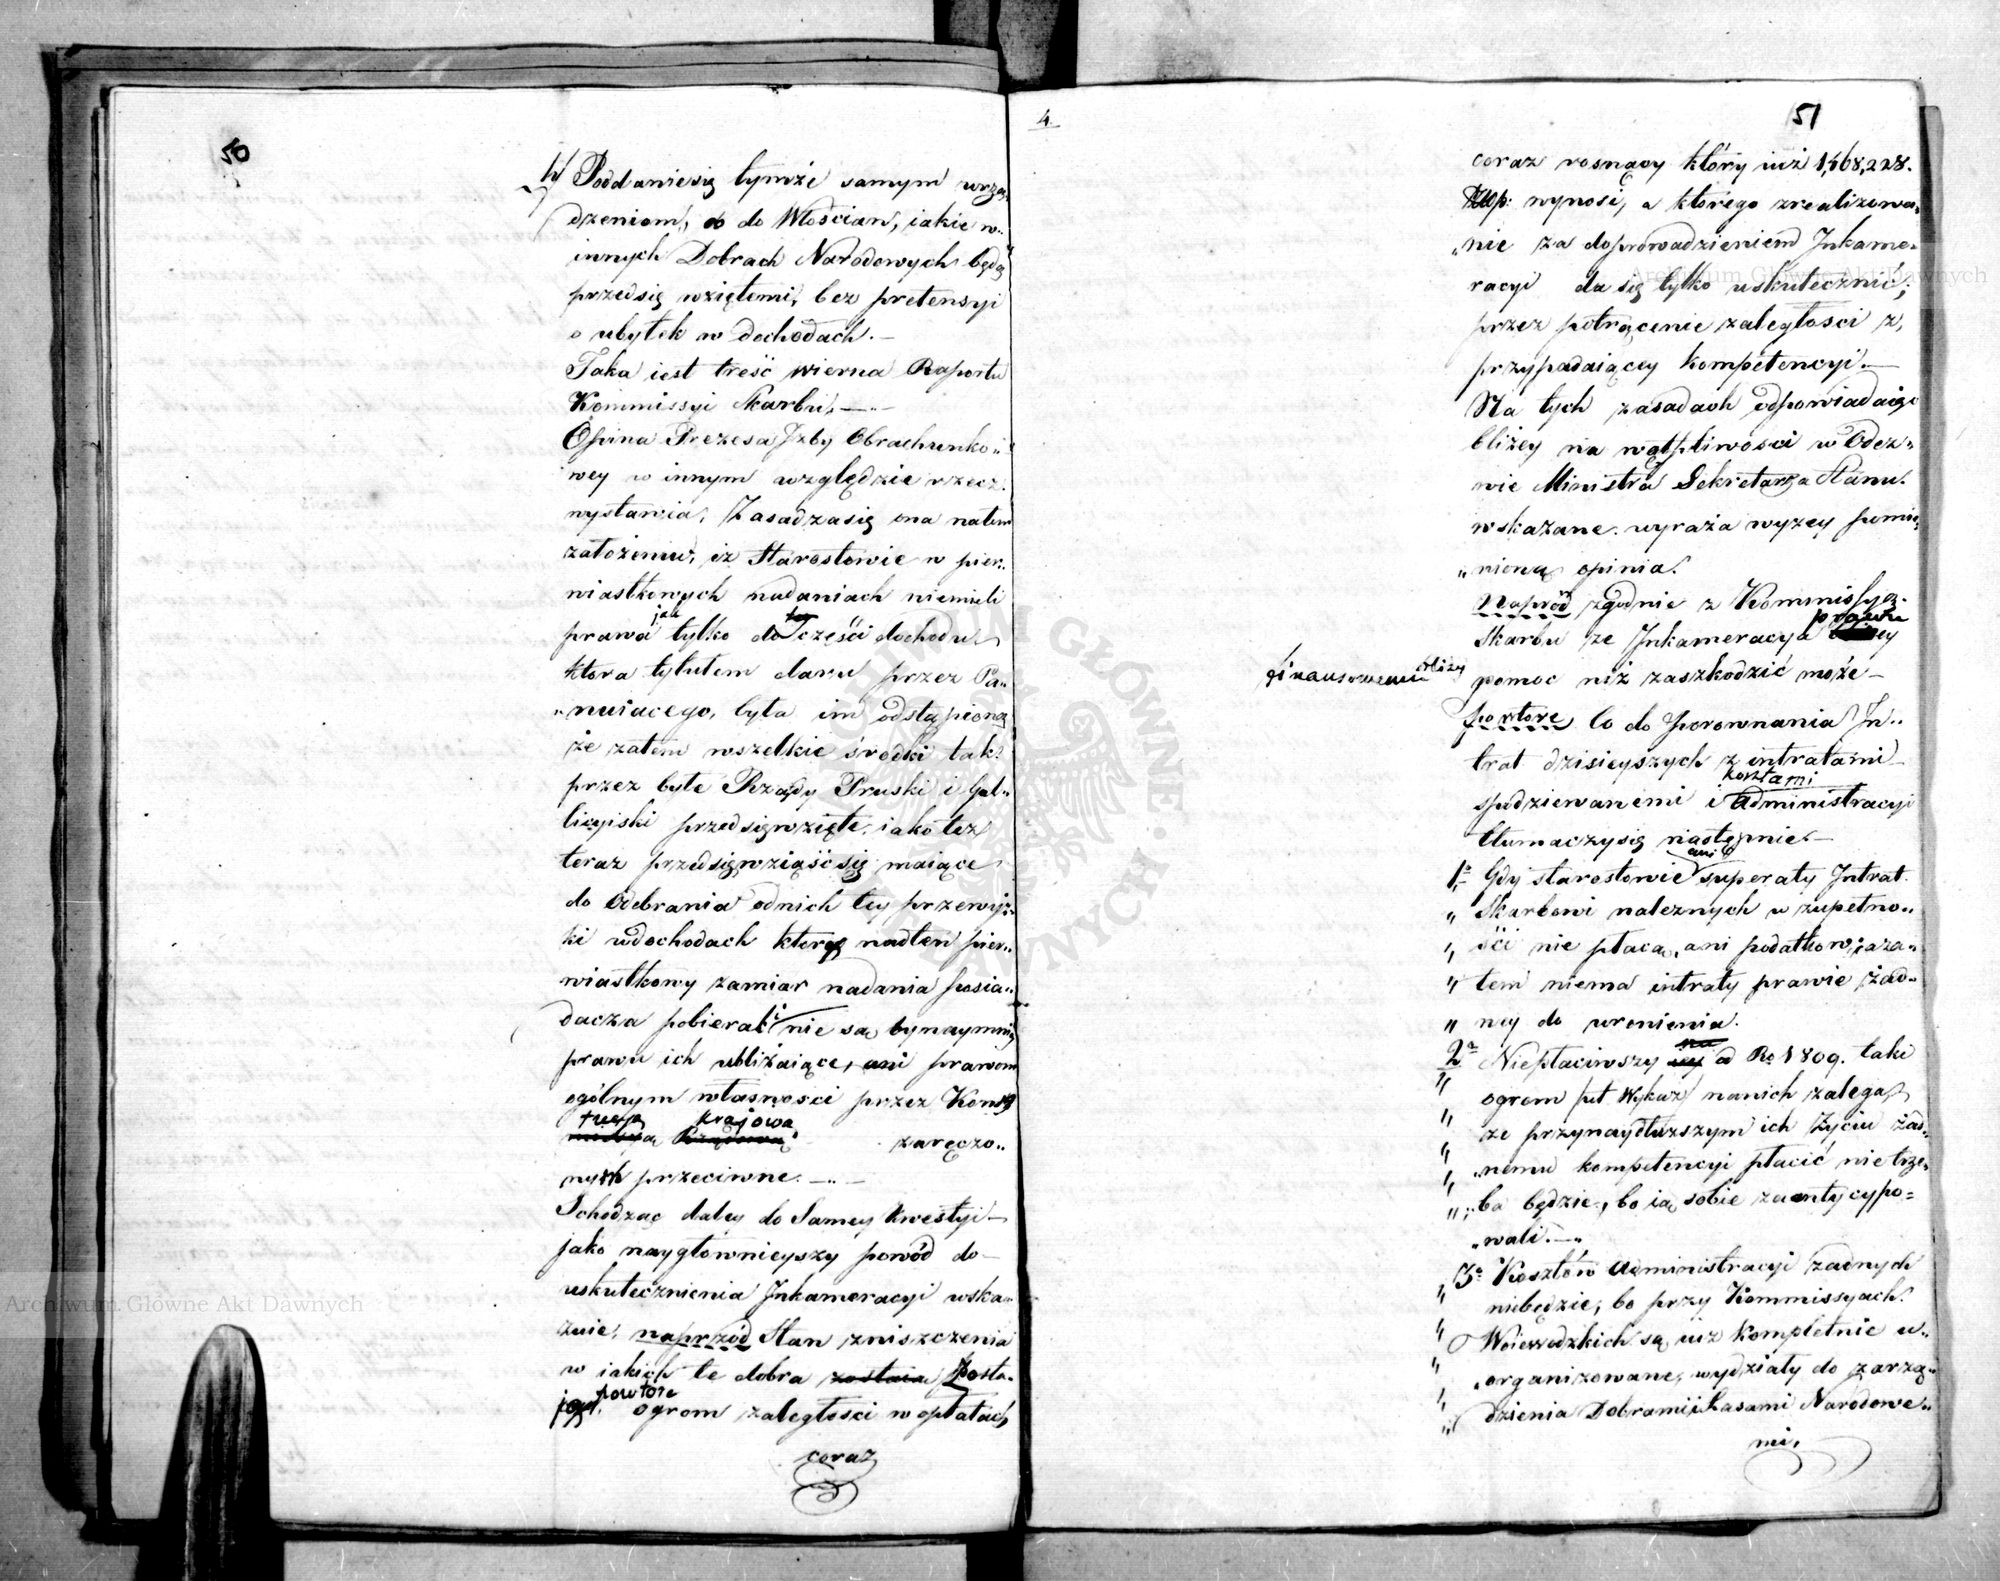 50
4) Poddanie się tymże samym urzą-
dzeniom, co do Włościan, iakie w
innych Dobrach Narodowych będą
przedsię wziętemi, bez pretensyi
o ubytek w dochodach.
Taka iest treść wierna Raportu
Kommissyi Skarbu,
Opina Prezesa Izby Obrachunko-
wey w innym względzie rzecz
wystawia, Zasadza się ona na tem
założeniu, iż Starostowie w pier-
wiastkowych nadaniach niemieli
prawa jak tylko do tey części dochodu
ktora tytułem daru przez Pa-
nuiacego, była im odstąpiona
że zatem wszelkie środki tak
przez byłe Rządy Pruski i Gal-
licyiski przedsięwzięte, iako też
teraz przedsięwziąść się maiące
do Odebrania od nich tey przewyż-
ki w dochodach którą nad ten pier-
wiastkowy zamiar nadania posia-
dacza pobierali nie są bynaymniey
prawu ich ubliżaiące, ani prawom
ogólnym własności przez Konsty
tucyą krajową
zaręczo-
nych przeciwne.
Schodząc daley do Samey kwestyi
jako naygłownieyszy powód do
uskutecznienia Inkameracyi wska-
zuie, naprzód Stan zniszczenia
w iakich te dobra zostaia Posta-
powtóre
ogrom zaległosci w opłatach
coraz
4.
51
coraz rosnący który iuż 1,468,228.
Złp: wynosi, a ktorego zrealizowa-
nie za doprowadzieniem Inkame-
racyi da się tylko uskutecznić;
przez potrącenie zaległosci z
przypadaiącey kompetencyi.
Na tych zasadach odpowiadaiąc
bliżey na wątpliwości w Odez-
wie Ministra Sekretarza Stanu
wskazane wyraża wyzey pomie-
nioną opinia.
Naprzód, zgodnie z Kommissyą
Skarbu ze Inkameracya prawu
finansowemu bliżey
pomoc niż zaszkodzić może
powtore, Co do porownania In-
trat dzisieyszych z intratami
spodziewanemi i kosztami Administracyi
tłumaczy się następnie.
1o Gdy starostowie ani superaty Intrat
Skarbowi należnych w zupełno-
ści nie płacą, ani podatkow, aza-
tem niema intraty prawie żad-
ney do uronienia.
2o Niepłaciwszy od Ro 1809. taki
ogrom jak Wykaz na nich zalega,
ze przynaydłuższym ich życiu żad-
nemu kompetencyi płacić nie trze-
ba będzie, bo ią sobie zaantycypo-
wali.
3o Kosztów Administracyi żadnych
niebędzie, bo przy Kommissyach
Woiewodzkich są iuż kompletnie u-
organizowane, wydziały do zarzą-
dzenia Dobrami i Lasami Narodowe-
mi,
Archiwum Główne Akt Dawnych
Archiwum Główne Akt Dawnych